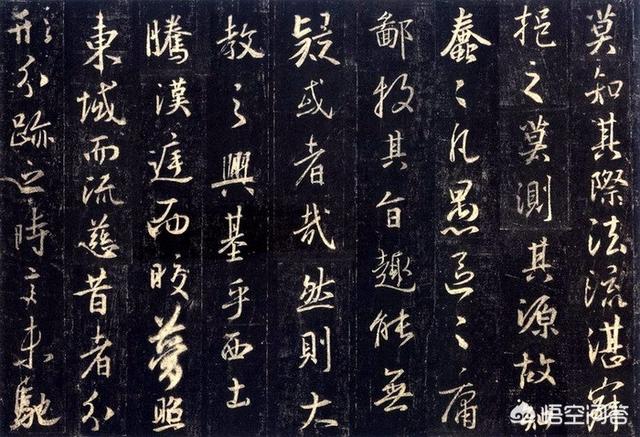 莫知其際法流湛寂
挹之莫測其源故知
蠢〻凡愚區〻庸
鄙投其旨趣能無
疑或者哉然則大
教之興基乎西土
騰漢庭而皎夢照
東域而流慈昔者分
形分跡之時言未馳
悟空问答